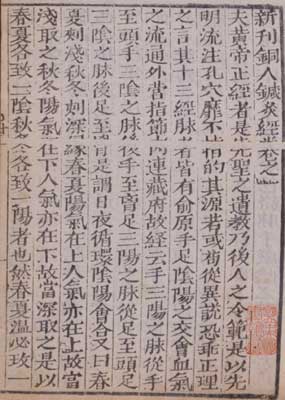 新刊銅人鍼灸經卷之一
夫黃帝正經者是先聖之遺教乃後人之令範是以先
明流注孔穴靡不指的其源若或苟從異說恐乖正理
之言其十三經脉者皆有俞原手足陰陽之交會血氣
之流通外營指節內連藏府故經云手三陽之脉從手
至頭手三之脉從手至足三陽之脉從足至頭足
三陰之脉從足至是謂日夜循環陰陽會合又曰春
夏刺淺秋冬刺深緣春夏陽氣在上人氣亦在上故當
淺取之秋冬陽氣在下人氣亦在下故當深取之是以
春夏各致一陰秋冬各致一陽者也然春夏溫必致一